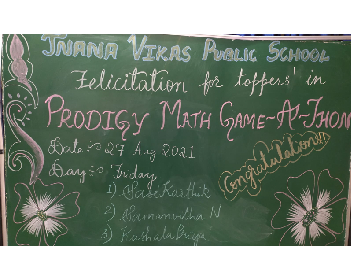 JNANA VIKAS PUBLIC SCHOOL
Felicitation for toppers' in
PRODIGY MATH GAME-A-THON
Date :- 27 Aug 2021
Day :- Friday
Congratulations!!
1)
2) N
3)